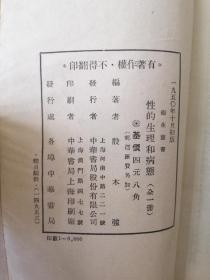 一九五〇年十月初版
有著作權·不得翻印
性的生理和病態(全一冊)
基價四元八角
(郵運匯費另加)
編著者 殷木強
發行者 中華書局股份有限公司
上海河南中路二二一號
印刷者 中華書局上海印刷廠
上海澳門路四七七號
發行處 各埠中華書局
印數1—6,000